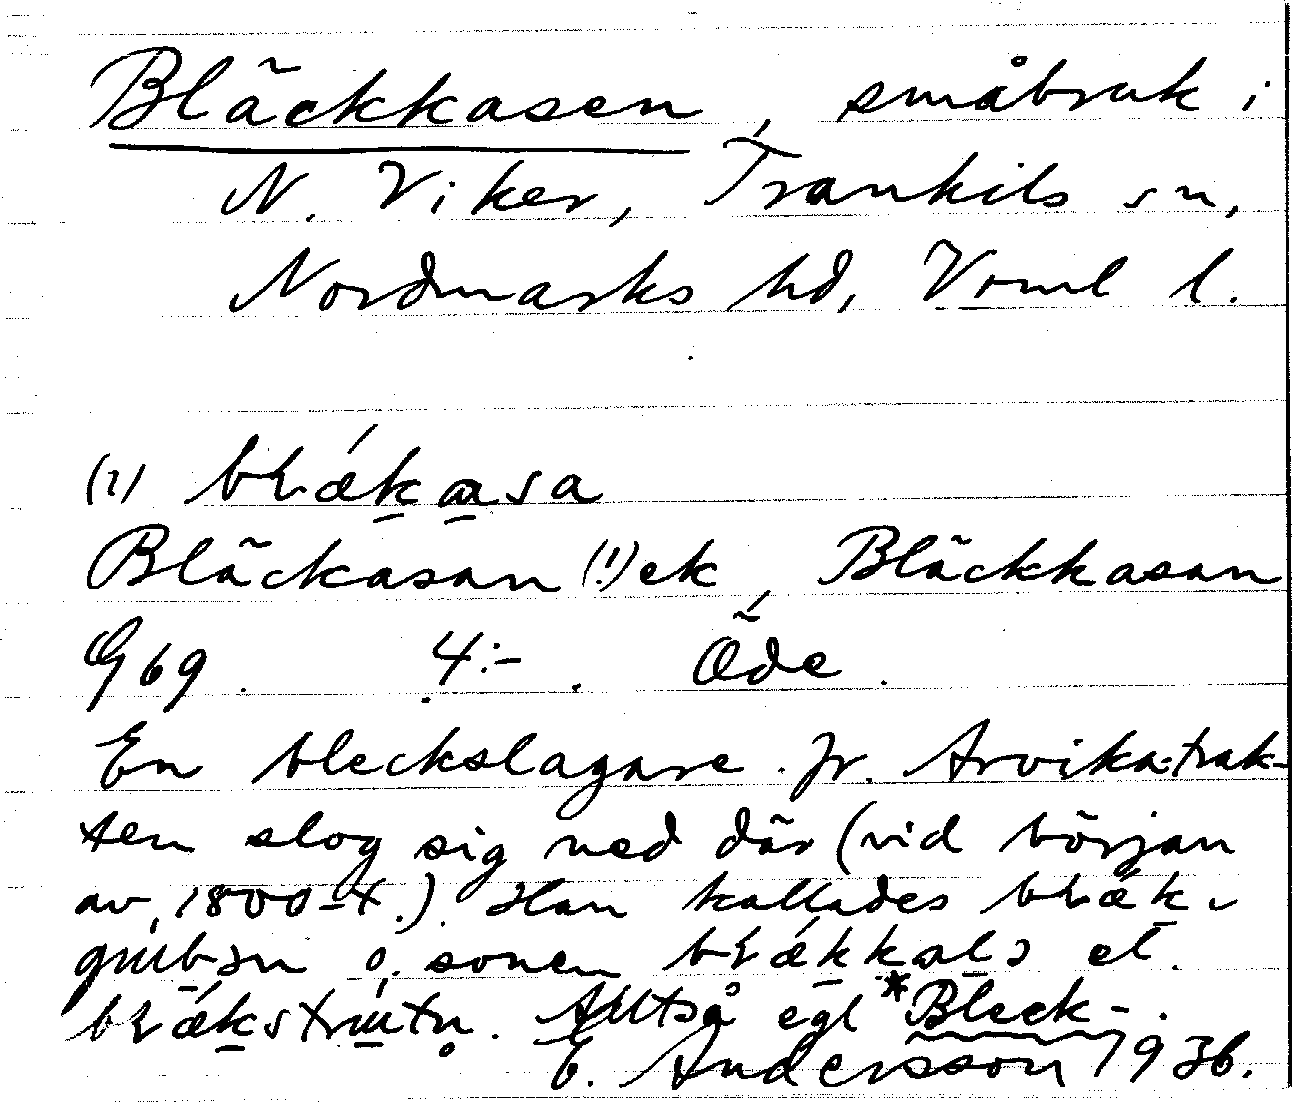 Bläckkasen, småbruk i
N. Viker, Trankils sn,
Nordmarks hd, Vrml l.
(1) 
Bläckasan (!) ek, Bläckkasan
G69. 4:-. Öde.
En bleckslagare fr. Arvika-trak-
ten slog sig ned där (vid början
av 1800-t.). Han kallades
o. sonen el.
Alltså egl *Bleck-.
E. Andersson 1936.